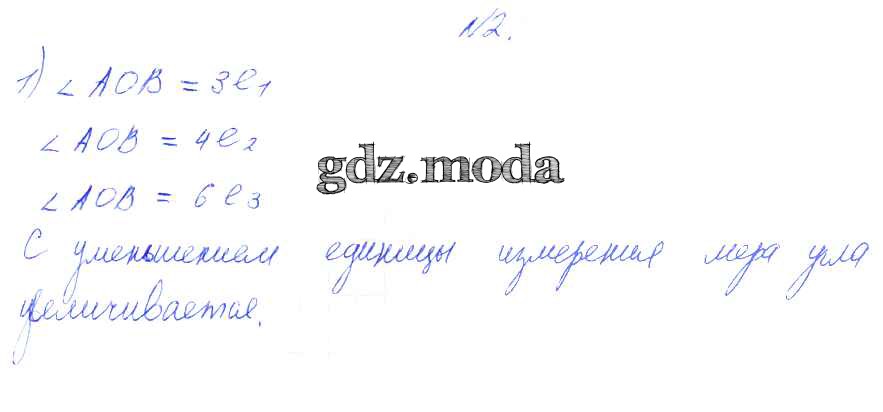 №2.
1) ∠AOB = 3e₁
∠AOB = 4e₂
gdz.moda
∠AOB = 6e₃
С уменьшением единицы измерения мера угла
увеличивается.